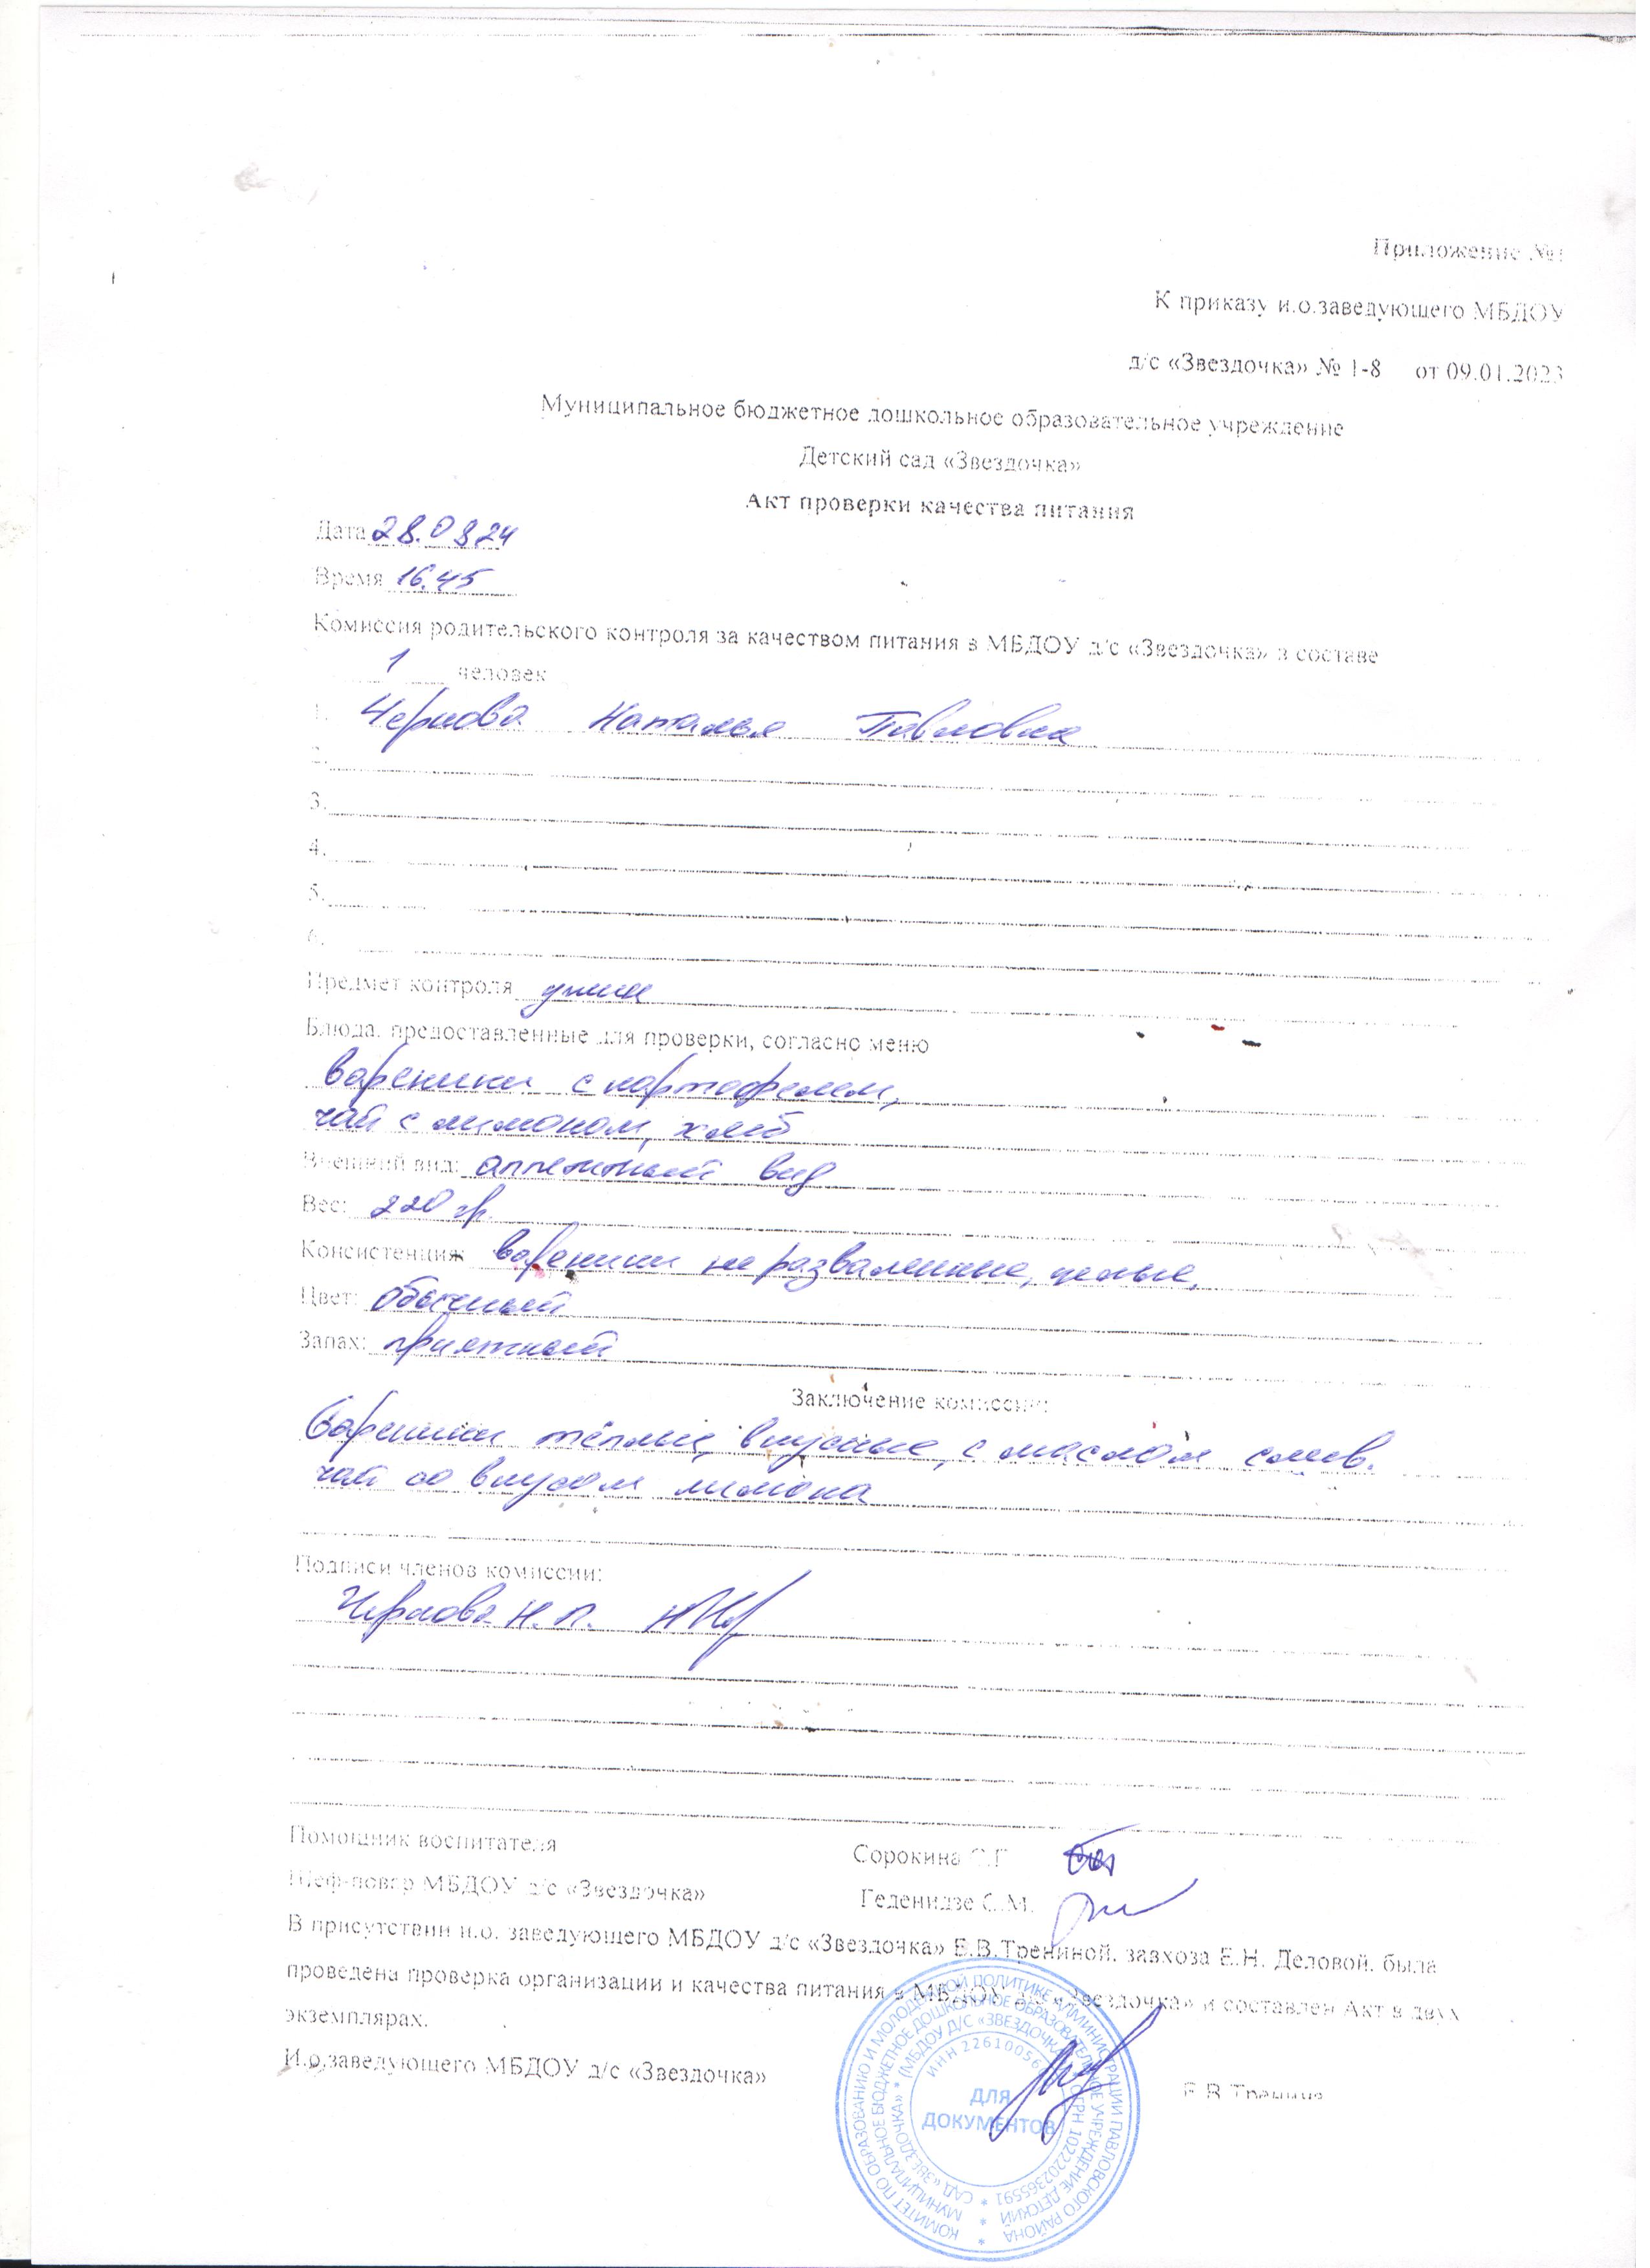 Приложение №1
К приказу и.о.заведующего МБДОУ
д/с «Звездочка» № 1-8 от 09.01.2023
Муниципальное бюджетное дошкольное образовательное учреждение
Детский сад «Звездочка»
Акт проверки качества питания
Дата 28.08.24
Время 16.45
Комиссия родительского контроля за качеством питания в МБДОУ д/с «Звездочка» в составе
1 человек
1. Чернова Наталья Павловна
2.
3.
4.
5.
6.
Предмет контроля ужин
Блюда, предоставленные для проверки, согласно меню
вареники с картофелем,
чай с лимоном, хлеб
Внешний вид: аппетитный вид
Вес: 220 гр.
Консистенция: вареники не разваленные, целые,
Цвет: обычный
Запах: приятный
Заключение комиссии:
Вареники тёплые, вкусные, с маслом слив.
чай со вкусом лимона
Подписи членов комиссии:
Чернова Н.П.
Помощник воспитателя Сорокина С.Г
Шеф-повар МБДОУ д/с «Звездочка» Геденидзе С.М.
В присутствии и.о. заведующего МБДОУ д/с «Звездочка» Е.В.Трениной, завхоза Е.Н. Деловой, была
проведена проверка организации и качества питания в МБДОУ д/с «Звездочка» и составлен Акт в двух
экземплярах.
И.о.заведующего МБДОУ д/с «Звездочка» Е.В.Тренина
КОМИТЕТ ПО ОБРАЗОВАНИЮ И МОЛОДЕЖНОЙ ПОЛИТИКЕ АДМИНИСТРАЦИИ ПАВЛОВСКОГО РАЙОНА
МУНИЦИПАЛЬНОЕ БЮДЖЕТНОЕ ДОШКОЛЬНОЕ ОБРАЗОВАТЕЛЬНОЕ УЧРЕЖДЕНИЕ ДЕТСКИЙ
САД «ЗВЕЗДОЧКА» * (МБДОУ Д/С «ЗВЕЗДОЧКА») ОГРН 1022202365591
ИНН 22610056
ДЛЯ
ДОКУМЕНТОВ